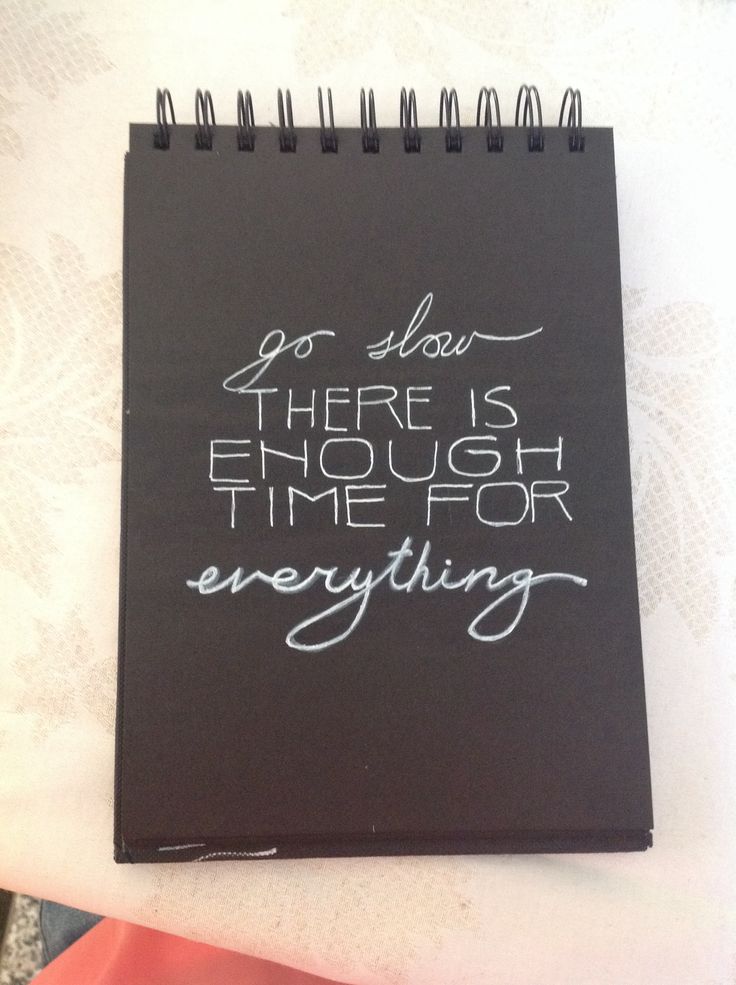 go slow
THERE IS
ENOUGH
TIME FOR
everything